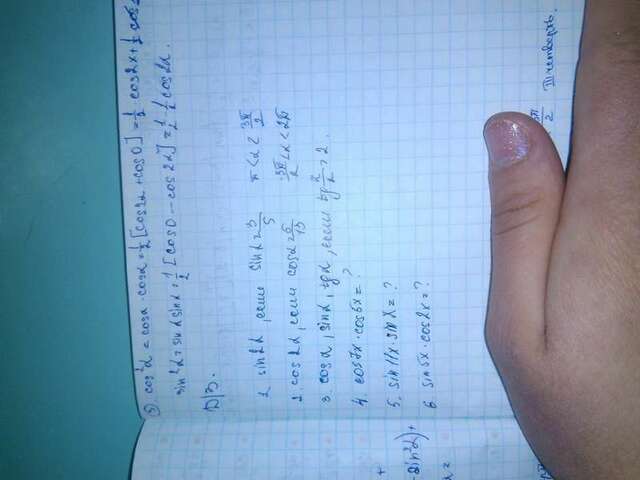 ⑤. cos²α = cosα · cosα = 1/2 [cos2α + cos0] = 1/2 · cos2x + 1/2 cos
sin²α = sinα sinα = 1/2 [cos0 − cos2α] = 1/2 · 1/2 cos2α.
D/З.
1. sin2α, если sinα = 3/5 π < α < 3π/2
2. cos2α, если cosα = 5/13 3π/2 < α < 2π
3 cosα, sinα, tgα, если tg α/2 = 2.
4. cos7x · cos6x = ?
5. sin11x · sinx = ?
6. sin5x · cos2x = ?
π/2 III четверть.
+
sin²α) +
α =